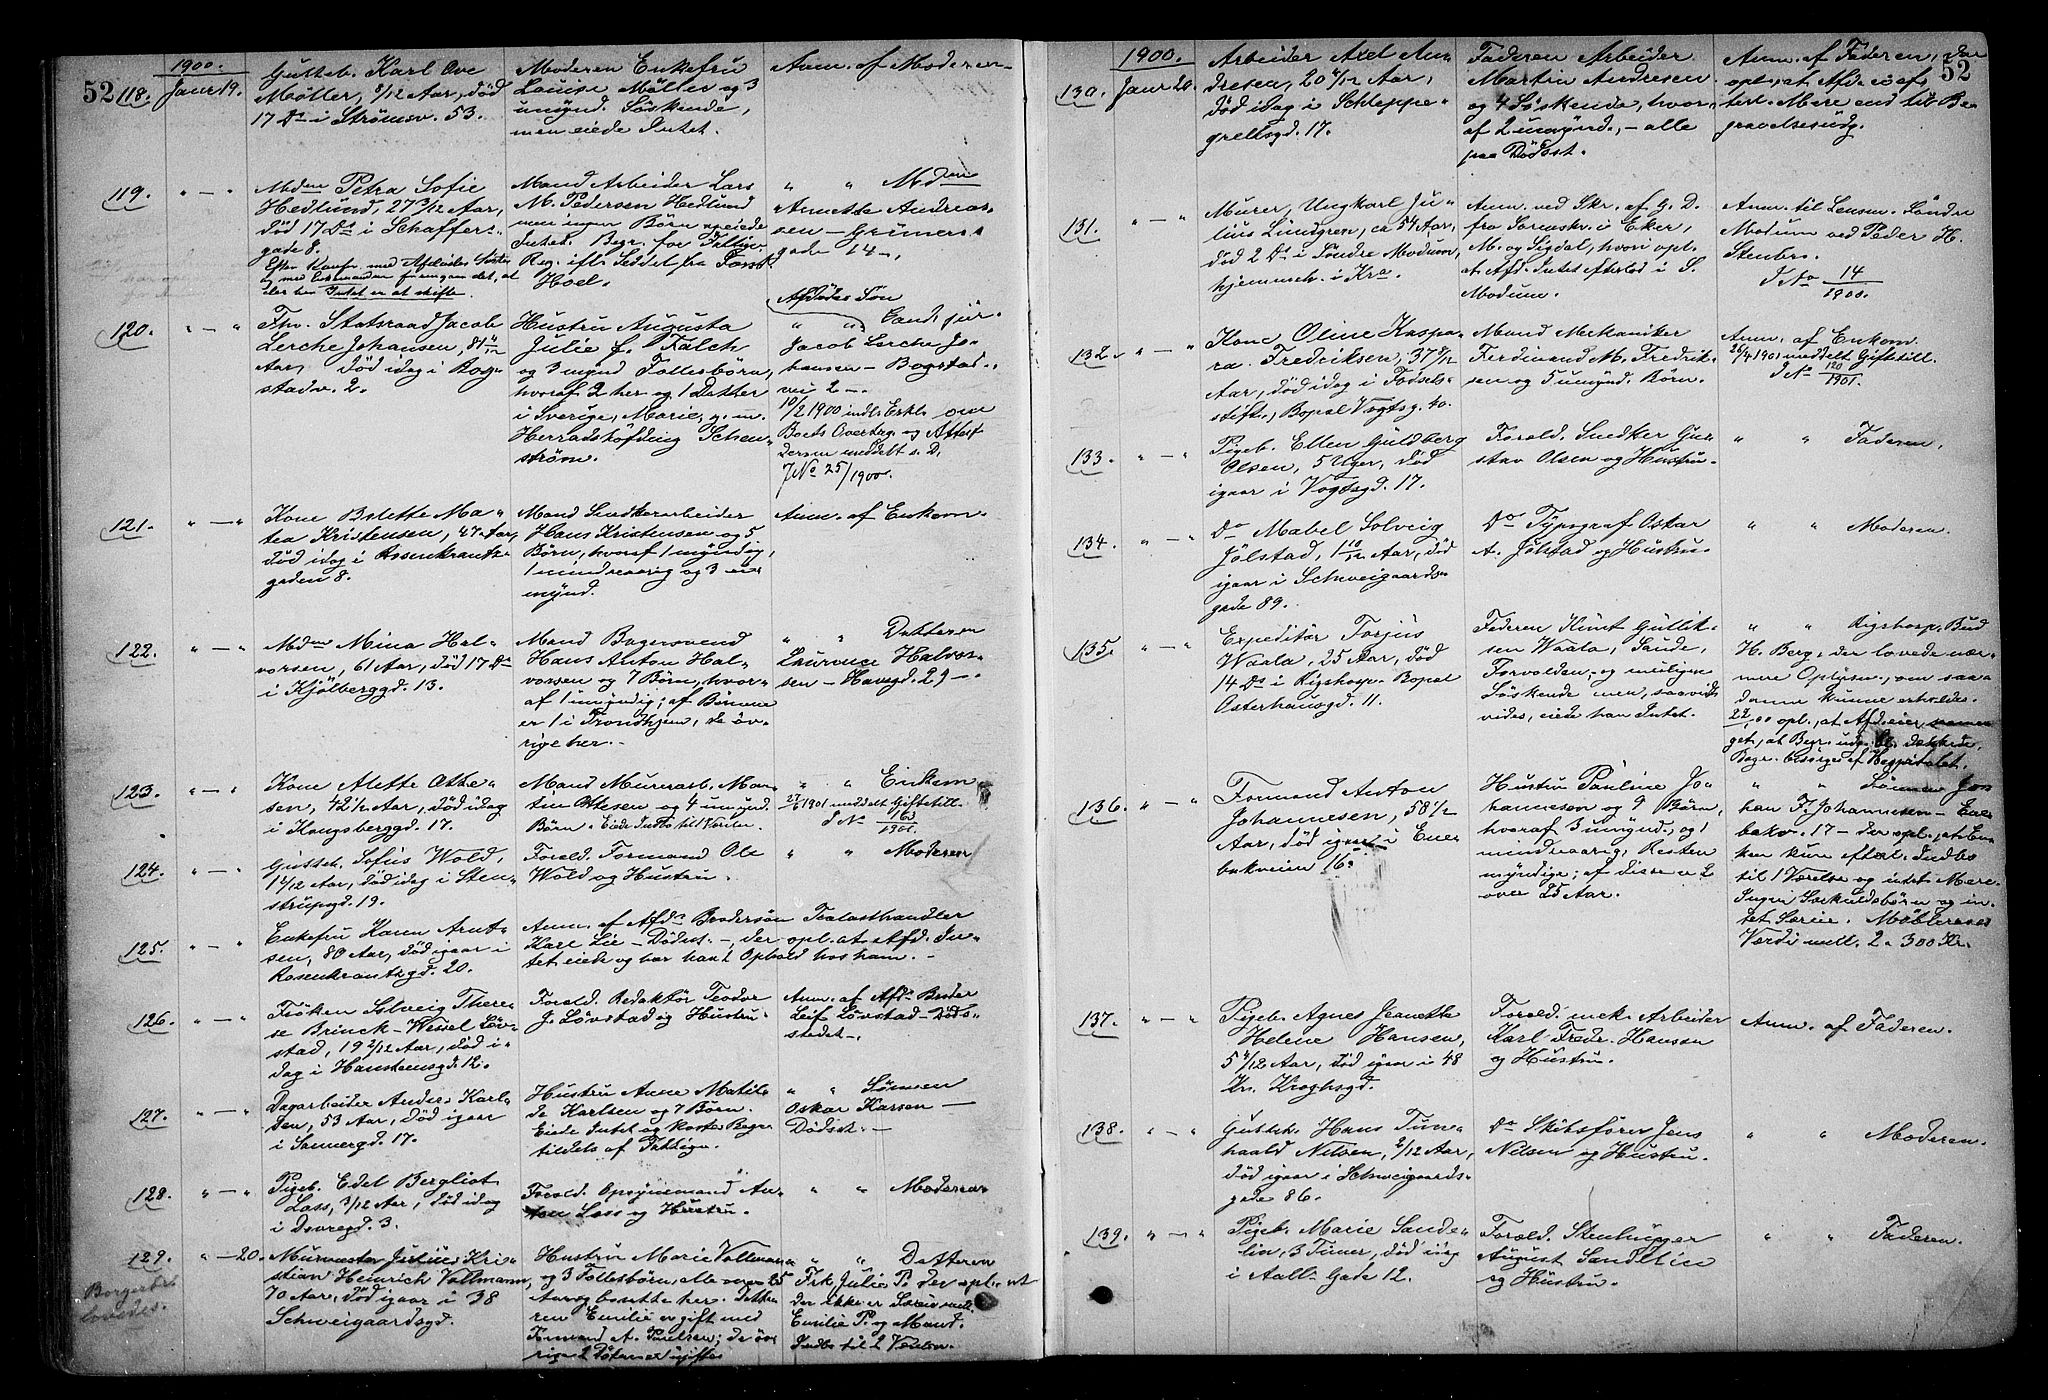 52
1900.
118.
Janr 19.
Gutteb. Karl Ove
Møller, 8/12 Aar, død
17 Ds i Strömsv. 53.
Moderen Enkefru
Louise Møller og 3
umynd. Söskende,
men eiede Intet.
Anm. af Moderen
119.
" — "
Mdme Petra Sofie
Hedlund, 27 3/12 Aar,
død 17 Ds i Schaffers
gade 8.
Efter Konf. med Afdødes Søster
og med Enkemanden fremgaar det, at
der her Intet er at skifte.
Mand Arbeider Lars
M. Pedersen Hedlund
men ingen Börn og eiede
Intet. Begr. for Fattigv.
Regn. ifl. Seddel fra
Hoel.
" " Mdme
Annette Andreas-
sen — Grüners
gade 14 —.
120.
" — "
Fhv. Statsraad Jacob
Lerche Johansen, 81 4/12
Aar, død idag i Bog-
stadv. 2.
Hustru Augusta
Julie f. Falch
og 3 mynd Fællesbörn,
hvoraf 2 her og 1 Datter
i Sverige, Marie, g. m.
Herradshöfding Schen-
ström.
Afdödes Sön
" " Cand. jur.
Jacob Lerche Jo-
hansen — Bogstad-
vei 2 —.
10/2 1900 indl. Erkl. om
Boets Overtag. og Attest
derom meddelt s. D.
J No 25/1900.
121.
" — "
Kone Bolette Ma-
tea Kristensen, 47 Aar,
død idag i Rosenkrantz-
gaden 8.
Mand Snedkerarbeider
Hans Kristensen og 5
Börn, hvoraf 1 myndig,
1 mindreaarig og 3 u-
mynd.
Anm. af Enkem.
122.
" — "
Mdme Mina Hal-
vorsen, 61 Aar, død 17 Ds
i Kjölberggd. 13.
Mand Bagersvend
Hans Anton Hal-
vorsen og 7 Börn, hvor-
af 1 umyndig; af Börnene
er 1 i Trondhjem, de öv-
rige her. -
" " Datteren
Laurence Halvor-
sen — Havegd. 29 —.
123.
" — "
Kone Alette Otte-
sen, 42 1/2 Aar, død idag
i Kongsberggd. 17.
Mand Murerarb. Mar-
tin Ottesen og 4 umynd.
Börn. Eiede Indbo til 1 Værelse.
" " Enkem
27/ 1901 meddelt Giftetill.
J No 163/1901.
124.
" — "
Gutteb. Sofus Wold,
1 4/12 Aar, død idag i Sten-
strupgd. 19.
Foræld. Formand Ole
Wold og Hustru.
" " Moderen
125.
" — "
Enkefru Karen Arnt-
sen, 80 Aar, død igaar i
Rosenkrantzgd. 20.
Anm. af Afds Brodersön Trælasthandler
Karl Lie — Dödsst. —, der opl. at Afd. In-
tet eiede og har havt Ophold hos ham. -
126.
" — "
Fröken Solveig There-
se Brinck-Wessel Löv-
stad, 19 2/12 Aar, død i-
dag i Hansteensgd. 12.
Foræld. Redaktör Teodor
J. Lövstad og Hustru.
Anm. af Afds Broder
Leif Lövstad — Döds-
stedet —.
127.
" — "
Dagarbeider Anders Karl-
sen, 53 Aar, død igaar
i Sannergd. 17.
Hustru Anne Matil-
de Karlsen og 7 Börn.
Eiede Intet og koster Begr.
tildels af Fattigv.
" " Sönnen
Oskar Karlsen —
Dödsst. —
128.
" — "
Pigeb. Edel Bergliot
Loss, 3/12 Aar, død idag
i Dovregd. 3.
Foræld. Opsynsmand An-
ton Loss og Hustru.
" " Moderen
129.
" — 20.
Borgerbr
lovedes.
Murmester Julius Kri-
stian Heinrich Vollmann,
70 Aar, død igaar i 38
Schweigaardsgd.
Hustru Marie Vollmann
og 3 Fællesbörn, alle over 25
Aar og bosatte her. Datte-
ren Emilie er gift med
Formand A. Paulsen; de öv-
rige 2 Dötre er ugifte
" " Datteren
Frk. Julie P. der opl. at
der ikke er Særeie mell.
Emilie P. og Mand.
Indbo til 2 Værelser.
52
1900.
130.
Janr 20.
Arbeider Axel An-
dresen, 20 4/12 Aar,
død idag i Schleppe-
grellsgd. 17.
Faderen Arbeider
Martin Andresen
og 4 Söskende, hvor-
af 2 umynd., — alle
paa Dödsst.
Anm. af Faderen, der
opl., at Afd. ei ef-
terl. Mere end til Be-
gravelsesudg.
131.
" — "
Murer, Ungkarl Ju-
lius Lundgren, ca 54 Aar,
død 2 Ds i Söndre Modum,
hjemmeh. i Kra.
Anm. ved Skr. af G. D.
fra Sorenskr. i Eker,
M. og Sigdal, hvori opl.
at Afd. Intet efterlod i S.
Modum.
Anm. til Lensm. Söndre
Modum ved Peder H.
Stenbro.
J No 14/1900.
132.
" — "
Kone Oline Kaspa-
ra Fredriksen, 37 8/12
Aar, død idag i Födsels-
stift., Bopæl Vogtsg. 40.
Mand Mekaniker
Ferdinand M. Fredrik-
sen og 5 umynd. Börn.
Anm. af Enkem.
26/4 1901 meddelt Giftetill.
J No 120/1901.
133.
" — "
Pigeb. Ellen Guldberg
Olsen, 5 Uger, død
igaar i Vogtsgd. 17.
Foræld. Snedker Gu-
stav Olsen og Hustru.
" " Faderen.
134.
" — "
Do Mabel Solveig
Jölstad, 1 10/12 Aar, død
igaar i Schweigaards-
gade 89.
Do Typograf Oskar
A. Jölstad og Hustru.
" " Moderen.
135.
" — "
Expeditör Torjus
Waala, 25 Aar, død
14 Ds i Rigshosp. Bopæl
Osterhausgd. 11.
Faderen Knut Gullik-
sen Waala, Sande,
Forvolden, og muligens
Söskende men, saavidt
vides, eiede han Intet.
" " Rigshosp. Bud
H. Berg, der lovede nær-
mere Oplysn., om saa-
danne kunne erholdes.
22/ 00 opl., at Afd. eier
get, at Begr. udg. dækkede.
Begr. besörges af Hospitalet.
136.
" — "
Formand Anton
Johannesen, 58 1/2
Aar, død igaar i Ener-
bakveien 16.
Hustru Pauline Jo-
hannesen og 9 Börn,
hvoraf 3 umynd., og 1
mindreaarig, Resten
myndige; af disse er 2
over 25 Aar.
" " Sönnen Jo-
han F. Johannesen — Ener-
bakv. 17 — der opl., at En-
ken kun efterl. Indbo
til 1 Værelse og intet Mere.
Ingen Særkuldsbörn og in-
tet Særeie. Möblernes
Værdi mell. 2 à 300 Kr.
137.
" — "
Pigeb. Agnes Jeanette
Helene Hansen,
5 4/12 Aar, død igaar i 48
Kr. Kroghsgd.
Foræld. mek. Arbeider
Karl Fredr. Hansen
og Hustru.
Anm. af Faderen.
138.
" — "
Gutteb. Hans Tun-
haald Nilsen, 2/12 Aar,
død igaar i Schweigaards-
gade 86.
Do Skibsförer Jens
Nilsen og Hustru.
" " Moderen.
139.
" — "
Pigeb. Marie Sande-
lin, 3 Timer, død idag
i Aall. Gade 12.
Foræld. Stenhugger
August Sandelin
og Hustru.
" " Faderen.